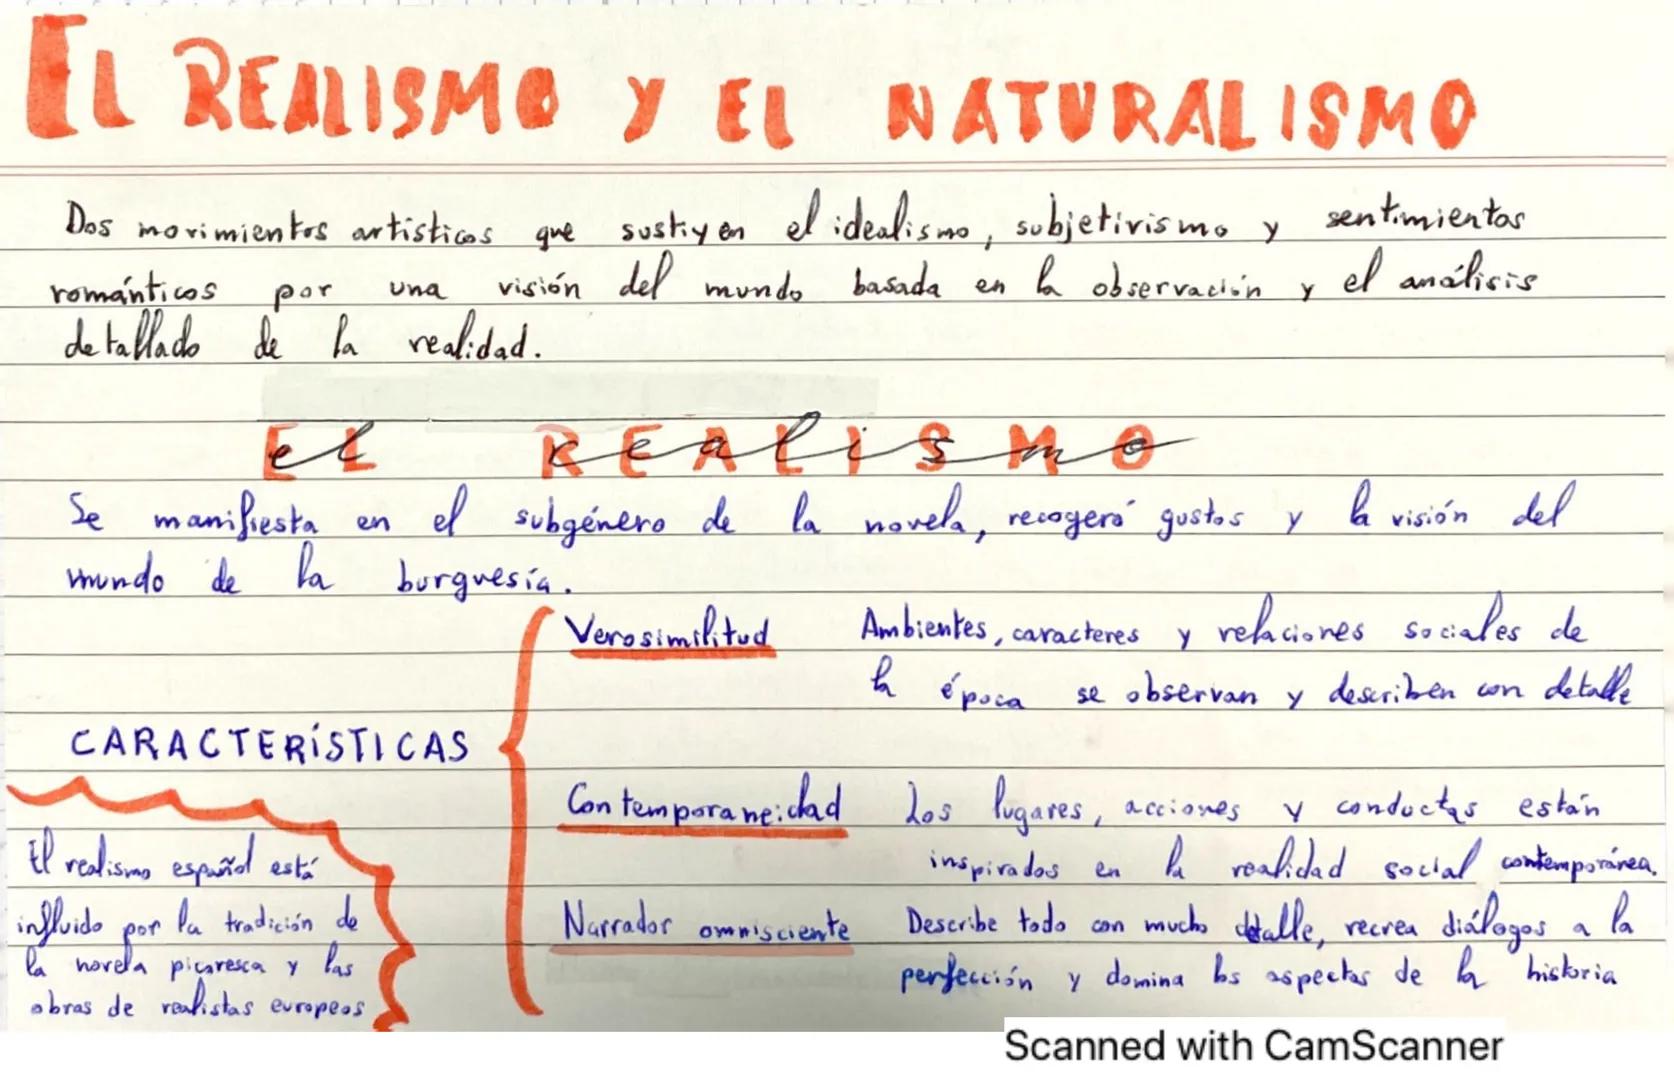 EL REALISMO Y EL NATURALISMO
Dos movimientos artísticos que sustiyen el idealismo, subjetivismo y sentimientos
románticos por una visión del mundo basada en la observación y el análisis
detallado de la realidad.
EL REALISMO
Se manifiesta en el subgénero de la novela, recogerá gustos y la visión del
mundo de la burguesía.
Verosimilitud Ambientes, caracteres y relaciones sociales de
la época se observan y describen con detalle
CARACTERÍSTICAS
Contemporaneidad Los lugares, acciones y conductas están
inspirados en la realidad social contemporánea.
Narrador omnisciente Describe todo con mucho detalle, recrea diálogos a la
perfección y domina los aspectos de la historia
El realismo español está
influido por la tradición de
la novela picaresca y las
obras de realistas europeos
Scanned with CamScanner